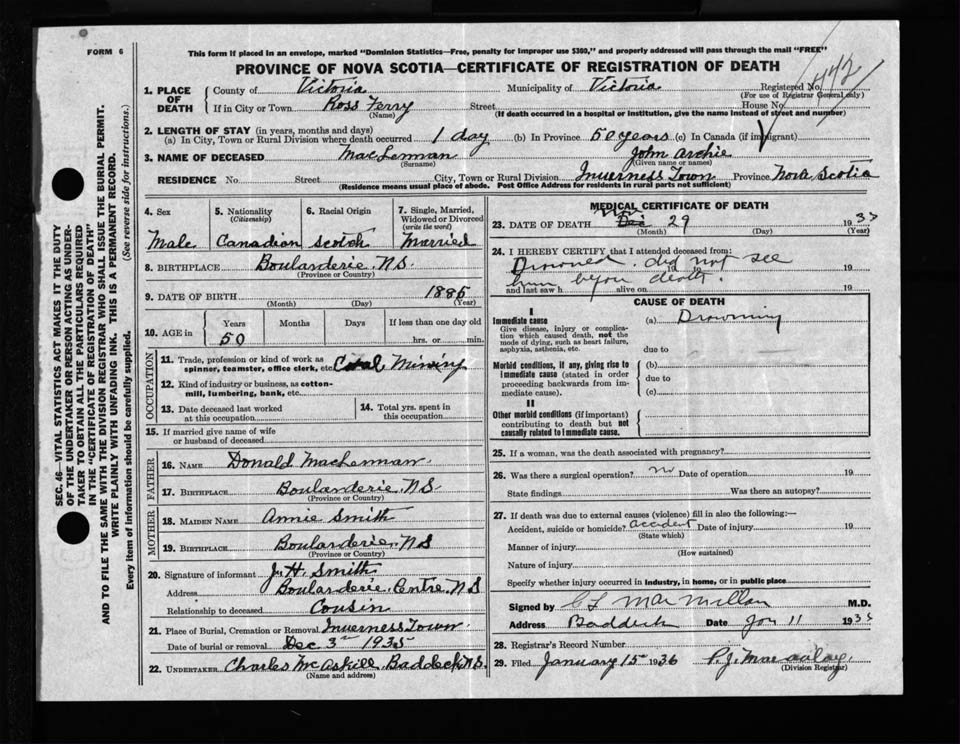 FORM 6
This form if placed in an envelope, marked "Dominion Statistics—Free, penalty for improper use $300," and properly addressed will pass through the mail "FREE"
PROVINCE OF NOVA SCOTIA—CERTIFICATE OF REGISTRATION OF DEATH
442
1. PLACE OF DEATH
County of Victoria Municipality of Victoria Registered No.
(For use of Registrar General only)
If in City or Town Ross Ferry Street House No.
(Name) (If death occurred in a hospital or institution, give the name instead of street and number)
2. LENGTH OF STAY (in years, months and days)
(a) In City, Town or Rural Division where death occurred 1 day (b) In Province 50 years (c) In Canada (if immigrant)
3. NAME OF DECEASED MacLennan John Archie
(Surname) (Given name or names)
RESIDENCE No. Street City, Town or Rural Division Inverness Town Province Nova Scotia
(Residence means usual place of abode. Post Office Address for residents in rural parts not sufficient)
4. Sex 5. Nationality (Citizenship) 6. Racial Origin 7. Single, Married, Widowed or Divorced (write the word)
Male Canadian Scotch Married
8. BIRTHPLACE Boularderie. N.S.
(Province or Country)
9. DATE OF BIRTH 1885
(Month) (Day) (Year)
10. AGE in Years Months Days If less than one day old
50 hrs. or min.
OCCUPATION
11. Trade, profession or kind of work as spinner, teamster, office clerk, etc. Coal Mining
12. Kind of industry or business, as cotton-mill, lumbering, bank, etc.
13. Date deceased last worked at this occupation
14. Total yrs. spent in this occupation
15. If married give name of wife or husband of deceased
FATHER
16. NAME Donald MacLennan.
17. BIRTHPLACE Boularderie. N.S.
(Province or Country)
MOTHER
18. MAIDEN NAME Annie Smith
19. BIRTHPLACE Boularderie. N.S
(Province or Country)
20. Signature of informant J. H. Smith
Address Boularderie. Centre. N.S
Relationship to deceased Cousin
21. Place of Burial, Cremation or Removal Inverness Town.
Date of burial or removal Dec. 3rd 1935
22. UNDERTAKER Charles McAskill. Baddeck. N.S.
(Name and address)
MEDICAL CERTIFICATE OF DEATH
23. DATE OF DEATH Dec Nov 29 1935
(Month) (Day) (Year)
24. I HEREBY CERTIFY that I attended deceased from:
Drowned. did not see 19
him before death.
and last saw h alive on 19
CAUSE OF DEATH
I
Immediate cause (a) Drowning
Give disease, injury or complication which caused death, not the mode of dying, such as heart failure, asphyxia, asthenia, etc.
due to
Morbid conditions, if any, giving rise to immediate cause (stated in order proceeding backwards from immediate cause).
(b)
due to
(c)
II
Other morbid conditions (if important) contributing to death but not causally related to immediate cause.
25. If a woman, was the death associated with pregnancy?
26. Was there a surgical operation? no Date of operation 19
State findings Was there an autopsy?
27. If death was due to external causes (violence) fill in also the following:—
Accident, suicide or homicide? accident Date of injury 19
(State which)
Manner of injury
(How sustained)
Nature of injury
Specify whether injury occurred in industry, in home, or in public place
Signed by C L MacMillan M.D.
Address Baddeck Date Jan 11 1935
28. Registrar's Record Number
29. Filed January 15 1936 P. J. Macaulay.
(Division Registrar)
SEC. 46—VITAL STATISTICS ACT MAKES IT THE DUTY
OF THE UNDERTAKER OR PERSON ACTING AS UNDERTAKER TO OBTAIN ALL THE PARTICULARS REQUIRED
IN THE "CERTIFICATE OF REGISTRATION OF DEATH"
AND TO FILE THE SAME WITH THE DIVISION REGISTRAR WHO SHALL ISSUE THE BURIAL PERMIT.
WRITE PLAINLY WITH UNFADING INK. THIS IS A PERMANENT RECORD.
Every item of Information should be carefully supplied. (See reverse side for instructions.)